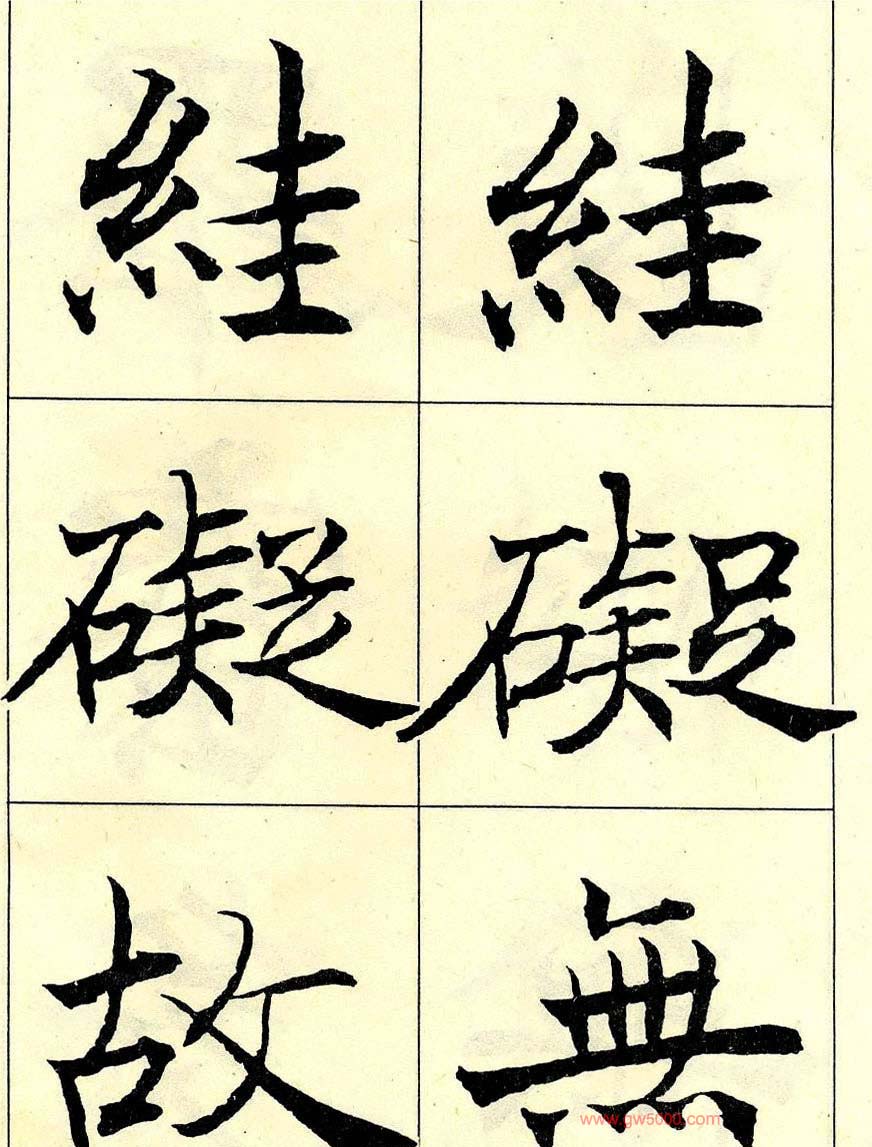 絓礙無
絓礙故
www.gw5000.com